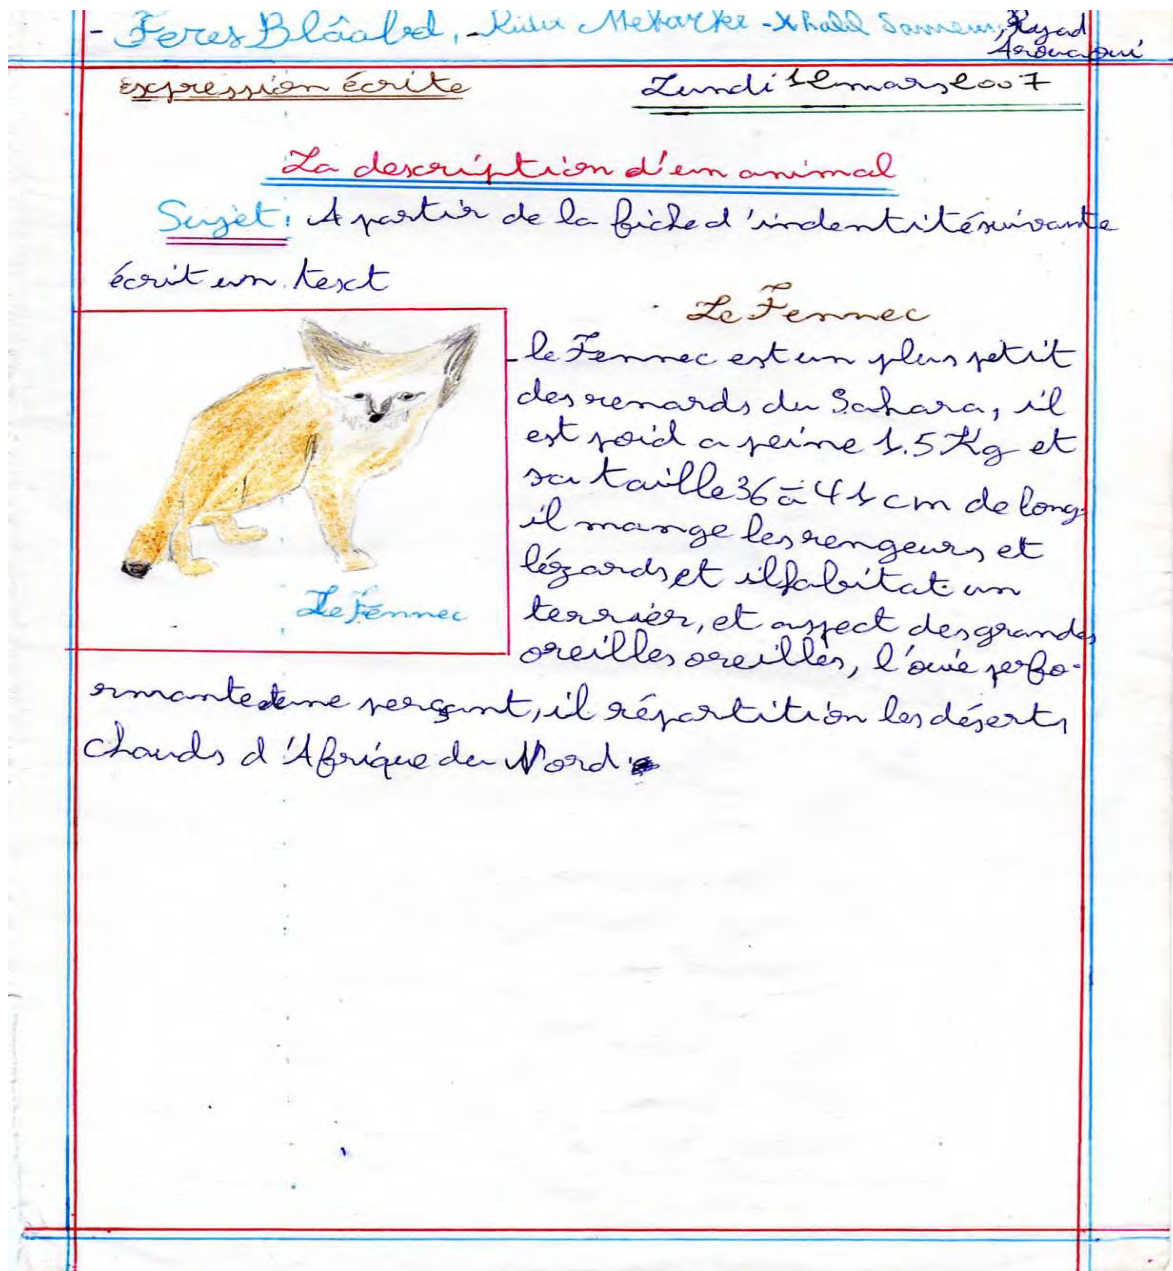 - Feres Blâabed, - Mekarke - Khalil Sameur, Ryad
expression écrite
Lundi 12 mars 2007
La description d'un animal
Sujet: A partir de la fiche d'indentité suivante
écrit un text
Le Fennec
- le Fennec est un plus petit
des renards du Sahara, il
est poid a peine 1.5 Kg et
sa taille 36 à 41 cm de long.
il mange les rengeurs et
lézards et il habitat un
terrier, et aspect des grandes
oreilles oreilles, l'ouïe perfo-
rmante perçant, il répartition les déserts
chauds d'Afrique du Nord.
Le Fennec